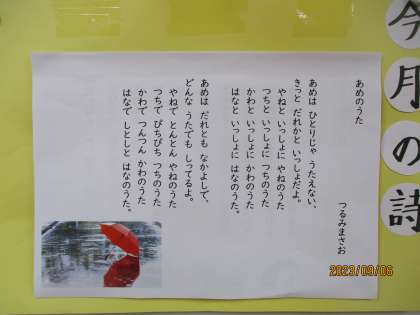 今月の詩
あめのうた
つるみまさお
あめは ひとりじゃ うたえない、
きっと だれかと いっしょだよ。
やねと いっしょに やねのうた
つちと いっしょに つちのうた
かわと いっしょに かわのうた
はなと いっしょに はなのうた。
あめは だれとも なかよしで、
どんな うたでも しってるよ。
やねで とんとん やねのうた
つちで ぴちぴち つちのうた
かわで つんつん かわのうた
はなで しとしと はなのうた。
2023/09/06